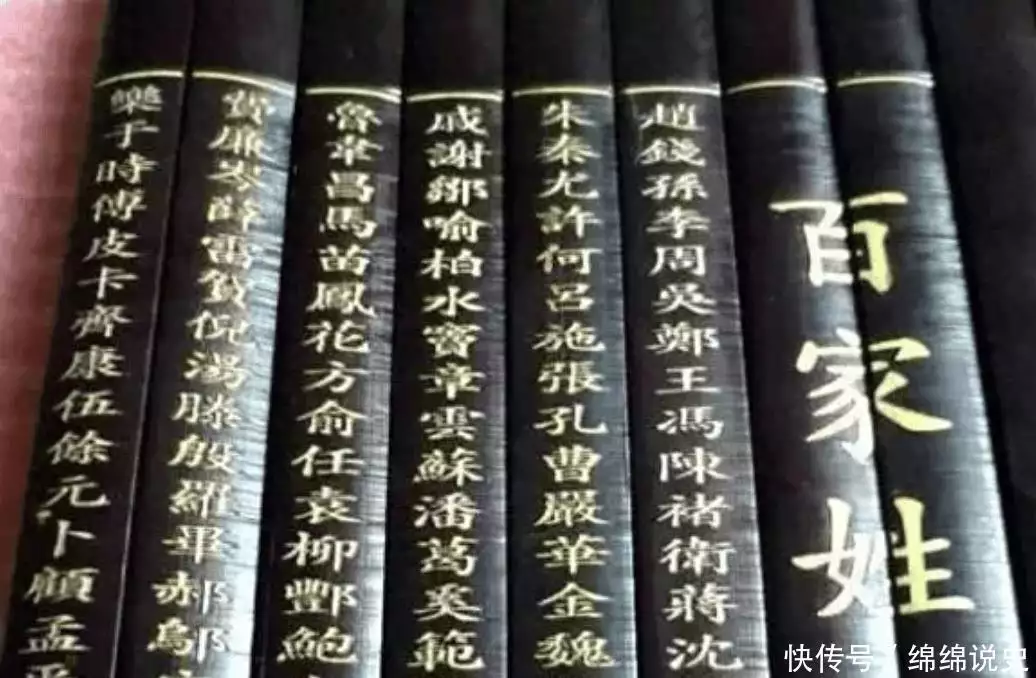 百家姓
趙錢孫李周吳鄭王馮陳褚衛蔣沈
朱秦尤許何呂施張孔曹嚴華金魏
戚謝鄒喻柏水竇章雲蘇潘葛奚範
魯韋昌馬苗鳳花方俞任袁柳酆鮑
費廉岑薛雷賀倪湯滕殷羅畢郝鄔
樂于時傅皮卡齊康伍餘元卜顧孟平
快传号 / 绵绵说史